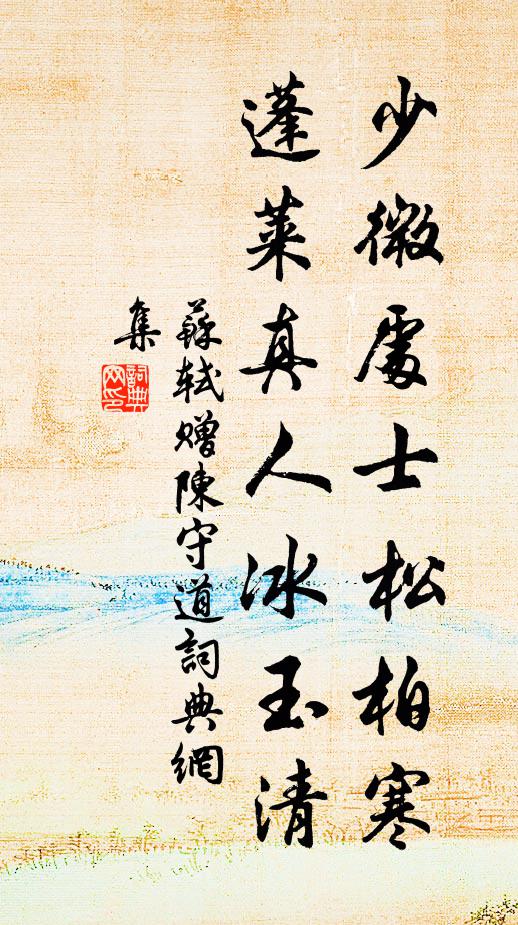 少微處士松柏寒
蓬萊真人冰玉清
蘇軾贈陳守道詞典網
集
詞典
网印